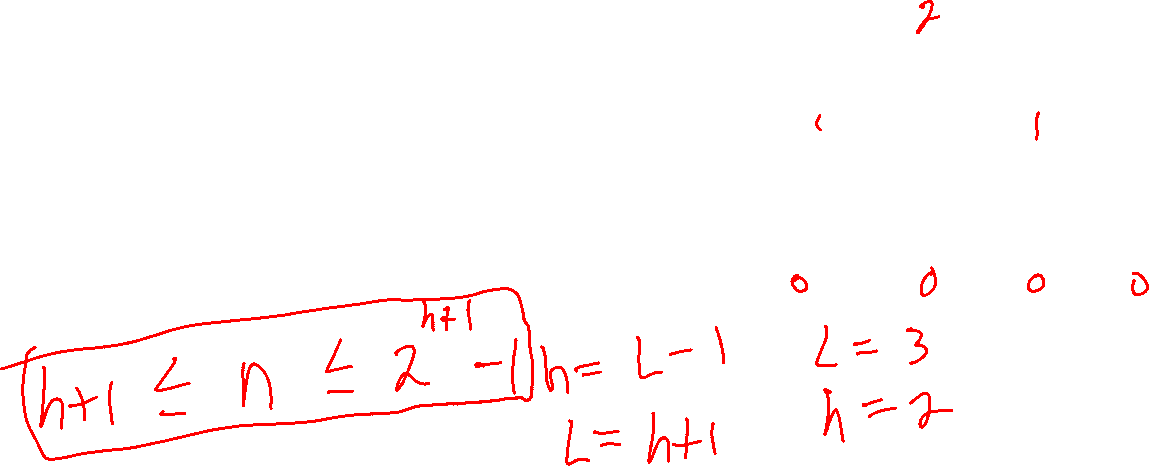 2
1 1
0 0 0 0
h+1 ≤ n ≤ 2^{h+1} - 1
h = L - 1
L = h+1
L = 3
h = 2